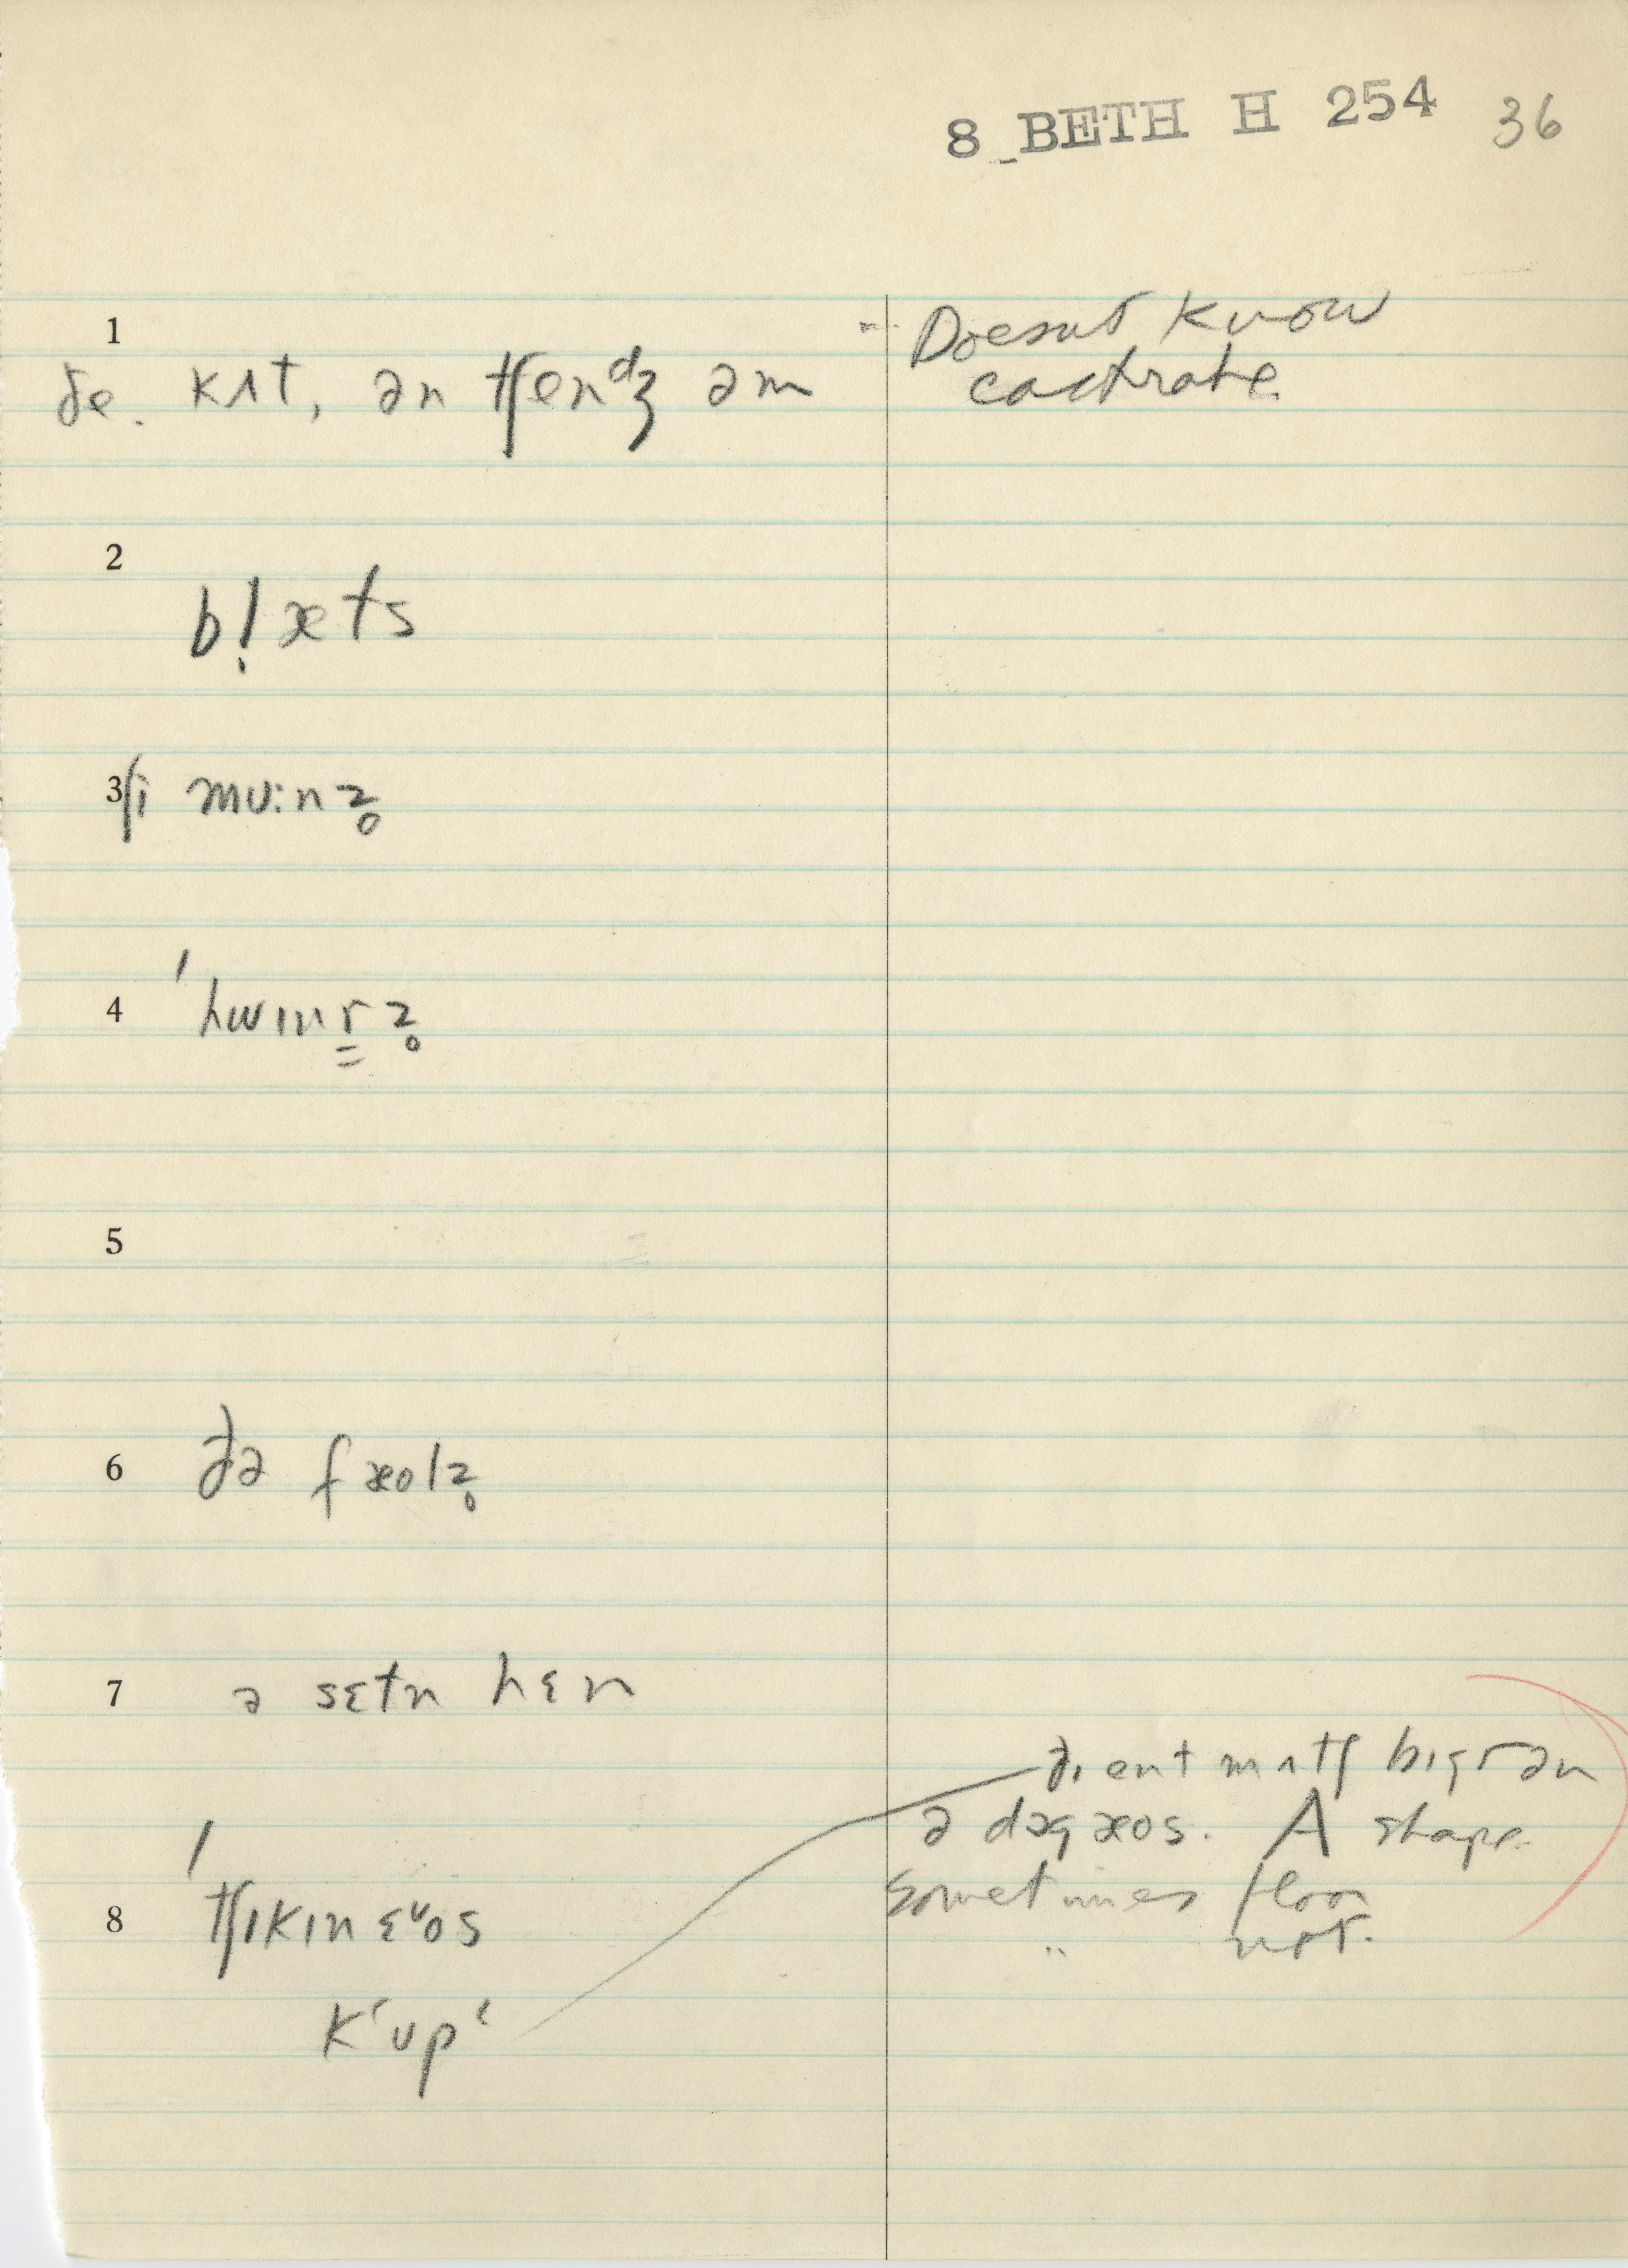 8 BETH H 254 36
1
ðe. kʌt, ən tʃenᵈʒ əm
Doesnt know
castrate.
2
bl̩æts
3 ʃi mʊ:nz̥
4 ˈhwɪnr̳z̥
5
6 ðə fæolz̥
7 ə sɛtn hɛn
8 ˈtʃɪkɪn ɛᶹos
kʻupʻ
ðɪ ent mʌtʃ bɪgr ən
ə dɔg æos. A shape
sometimes floor
" not.